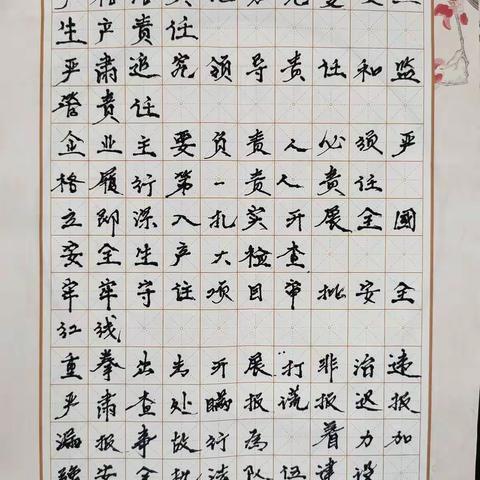 生产责任
严肃追究领导责任和监
管责任
企业主要负责人必须严
格履行第一责人责任
立即深入扎实开展全國
安全生产大检查
牢牢守住项目审批安全
红线
重拳出击开展“打非治违
严肃查处瞒报谎报迟报
漏报事故行为 着力加
强安全执法队伍建设